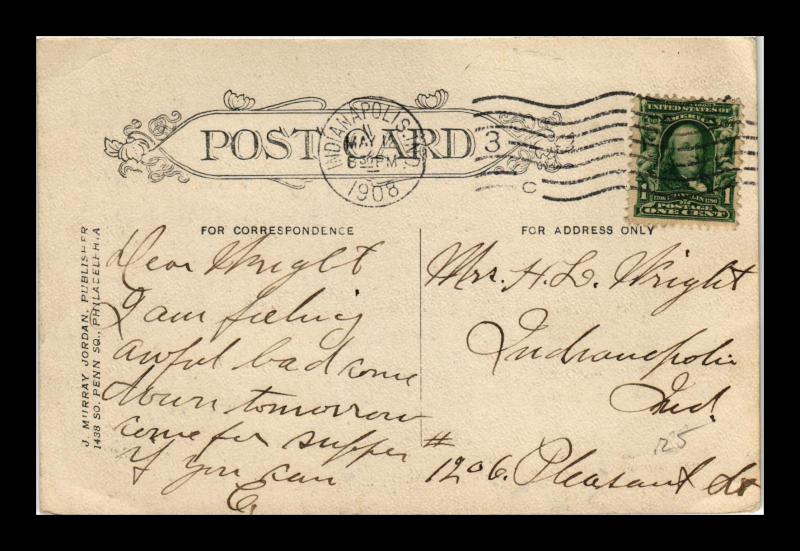 POST CARD
INDIANAPOLIS, IND.
MAY
6 30 PM
1908
3
C
UNITED STATES OF
AMERICA
1
POSTAGE
ONE CENT
FOR CORRESPONDENCE
FOR ADDRESS ONLY
J. MURRAY JORDAN, PUBLISHER
1438 SO. PENN SQ., PHILADELPHIA
Dear Wright
I am feeling
awful bad come
down tomorrow
come for supper
if you can
E
Mrs. H. L. Wright
Indianapolis
Ind.
# 1206. Pleasant St
125